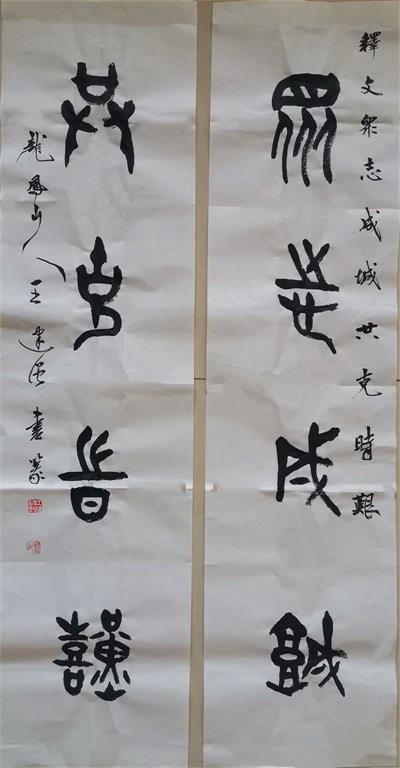 釋文衆志成城共克時艱
衆志成城
共克時艱
龍鳳山人王建強書篆